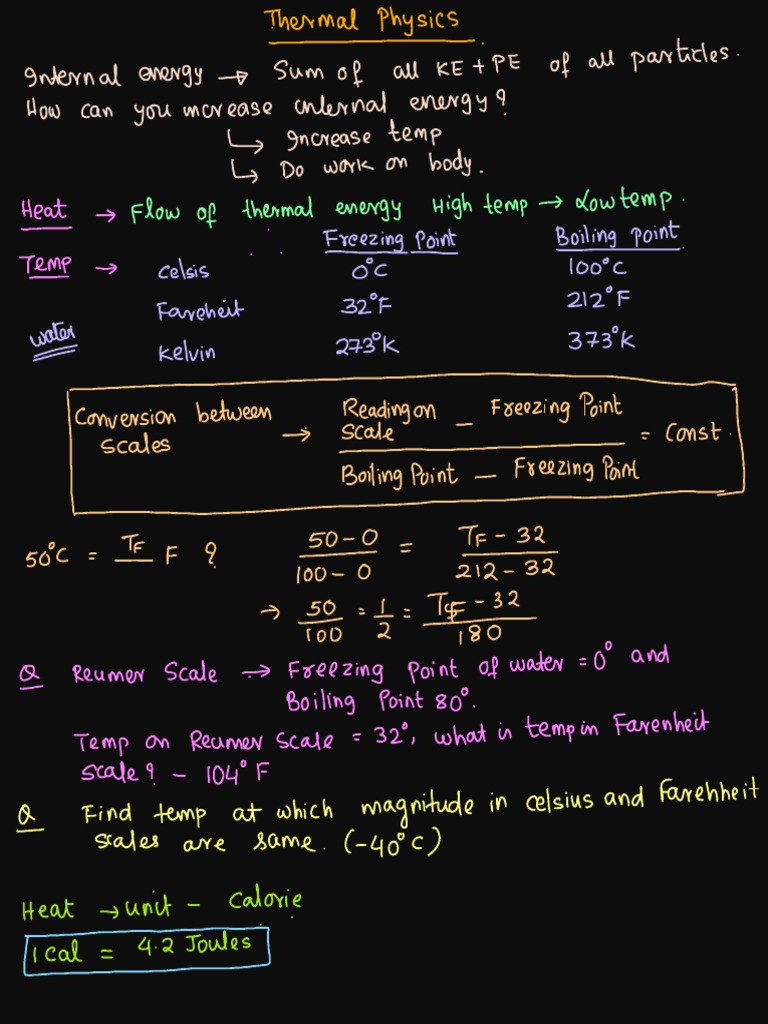 Thermal Physics
Internal energy → Sum of all KE + PE of all particles.
How can you increase internal energy?
↳ Increase temp
↳ Do work on body.
Heat → Flow of thermal energy High temp → Low temp.
Freezing Point Boiling point
Temp → Celsis 0°C 100°C
Fareheit 32°F 212°F
water Kelvin 273°K 373°K
Conversion between scales → (Reading on scale - Freezing Point) / (Boiling Point - Freezing Point) = Const.
50°C = TF F ? (50-0)/(100-0) = (TF - 32)/(212-32)
→ 50/100 = 1/2 = (TF - 32)/180
Q Reumer Scale → Freezing Point of water = 0° and
Boiling Point 80°.
Temp on Reumer Scale = 32°, what is temp in Farenheit
scale? - 104°F
Q Find temp at which magnitude in celsius and Farehheit
scales are same. (-40°C)
Heat → unit - Calorie
1 Cal = 4.2 Joules